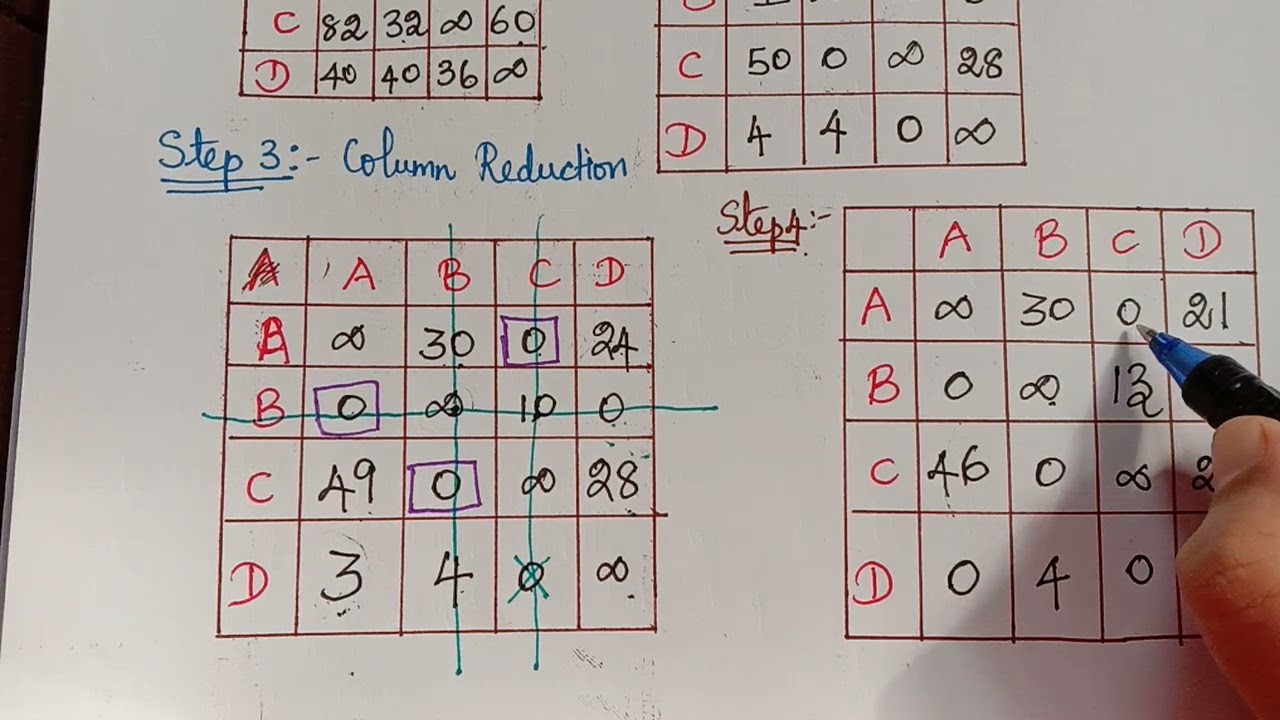 C 82 32 ∞ 60
D 40 40 36 ∞
C 50 0 ∞ 28
D 4 4 0 ∞
Step 3:- Column Reduction
A B C D
A ∞ 30 0 24
B 0 ∞ 10 0
C 49 0 ∞ 28
D 3 4 0 ∞
Step 4:-
A B C D
A ∞ 30 0 21
B 0 ∞ 13
C 46 0 ∞ 2
D 0 4 0